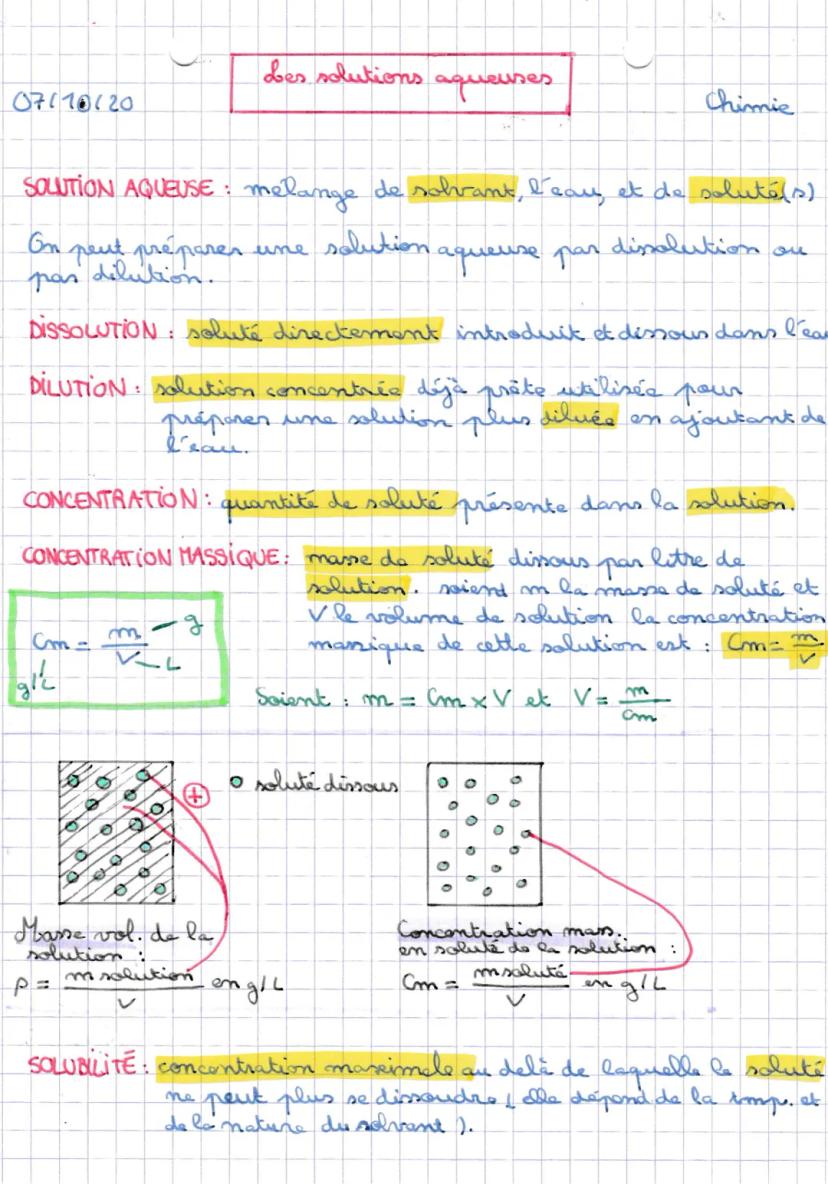 Les solutions aqueuses
07/10/20
Chimie
SOLUTION AQUEUSE : mélange de solvant, l'eau, et de soluté(s)
On peut préparer une solution aqueuse par dissolution ou
par dilution.
DISSOLUTION : soluté directement introduit et dissous dans l'eau
DILUTION : solution concentrée déjà prête utilisée pour
préparer une solution plus diluée en ajoutant de
l'eau.
CONCENTRATION : quantité de soluté présente dans la solution.
CONCENTRATION MASSIQUE : masse de soluté dissous par litre de
solution. soient m la masse de soluté et
V le volume de solution la concentration
massique de cette solution est : Cm = m/V
Cm = m/V
g
L
g/L
Soient : m = Cm x V et V = m/Cm
+
soluté dissous
Masse vol. de la
solution :
ρ = m solution/V en g/L
Concentration mass.
en soluté de la solution :
Cm = m soluté/V en g/L
SOLUBILITÉ : concentration maximale au delà de laquelle le soluté
ne peut plus se dissoudre ( elle dépend de la tmp. et
de la nature du solvant ).